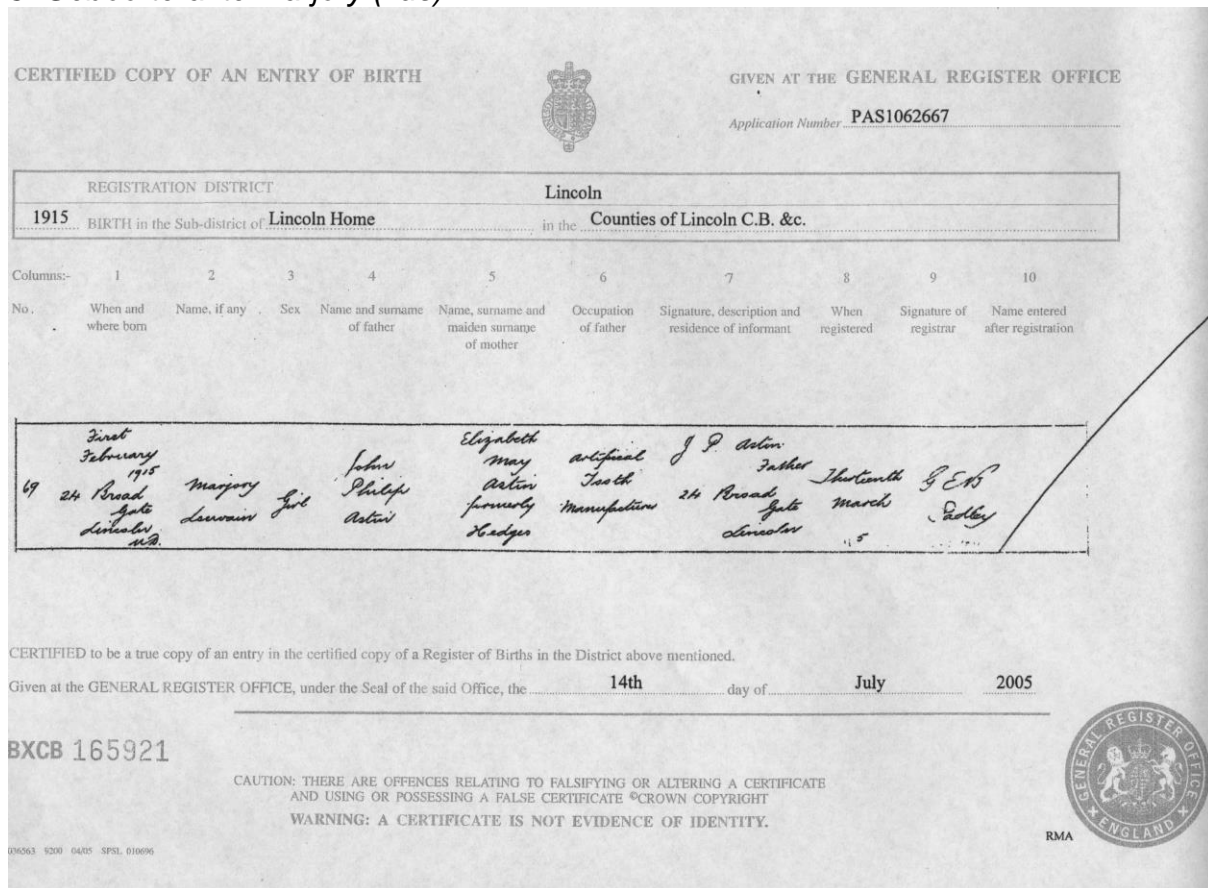 CERTIFIED COPY OF AN ENTRY OF BIRTH
GIVEN AT THE GENERAL REGISTER OFFICE
Application Number PAS1062667
REGISTRATION DISTRICT Lincoln
1915 BIRTH in the Sub-district of Lincoln Home in the Counties of Lincoln C.B. &c.
Columns:- 1 2 3 4 5 6 7 8 9 10
No. When and where born Name, if any Sex Name and surname of father Name, surname and maiden surname of mother Occupation of father Signature, description and residence of informant When registered Signature of registrar Name entered after registration
69
First
February
1915
24 Broad
Gate
Lincoln
U.D.
Marjory
Louvain
Girl
John
Philip
Astin
Elizabeth
May
Astin
formerly
Hedges
Artificial
Tooth
Manufacturer
J P Astin
Father
24 Broad
Gate
Lincoln
Thirteenth
March
Padley
CERTIFIED to be a true copy of an entry in the certified copy of a Register of Births in the District above mentioned.
Given at the GENERAL REGISTER OFFICE, under the Seal of the said Office, the 14th day of July 2005
BXCB 165921
CAUTION: THERE ARE OFFENCES RELATING TO FALSIFYING OR ALTERING A CERTIFICATE
AND USING OR POSSESSING A FALSE CERTIFICATE ©CROWN COPYRIGHT
WARNING: A CERTIFICATE IS NOT EVIDENCE OF IDENTITY.
GENERAL REGISTER OFFICE ENGLAND
RMA
036563 9200 04/05 SPSL 010696